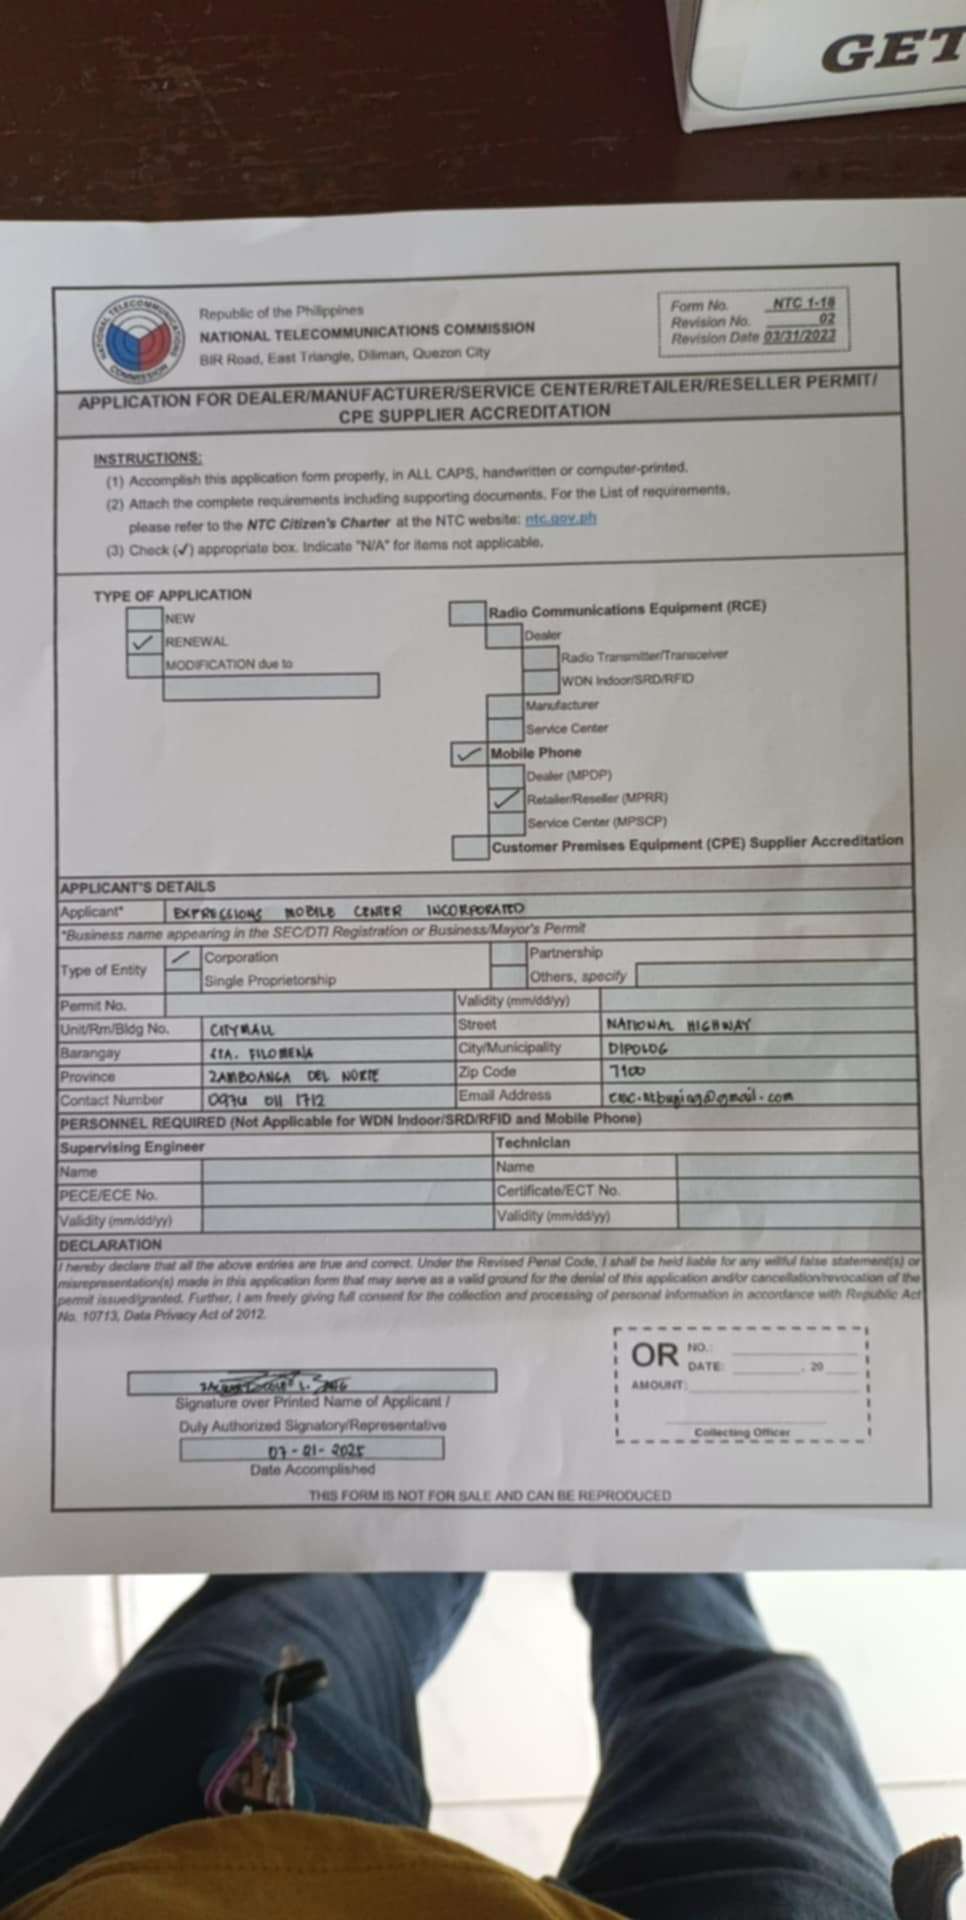 GET
Republic of the Philippines
NATIONAL TELECOMMUNICATIONS COMMISSION
BIR Road, East Triangle, Diliman, Quezon City
Form No. NTC 1-18
Revision No. 02
Revision Date 03/31/2023
NATIONAL TELECOMMUNICATIONS COMMISSION
APPLICATION FOR DEALER/MANUFACTURER/SERVICE CENTER/RETAILER/RESELLER PERMIT/
CPE SUPPLIER ACCREDITATION
INSTRUCTIONS:
(1) Accomplish this application form properly, in ALL CAPS, handwritten or computer-printed.
(2) Attach the complete requirements including supporting documents. For the List of requirements,
please refer to the NTC Citizen's Charter at the NTC website: ntc.gov.ph
(3) Check (✓) appropriate box. Indicate "N/A" for items not applicable.
TYPE OF APPLICATION
NEW
✓ RENEWAL
MODIFICATION due to
Radio Communications Equipment (RCE)
Dealer
Radio Transmitter/Transceiver
WDN Indoor/SRD/RFID
Manufacturer
Service Center
✓ Mobile Phone
Dealer (MPDP)
✓ Retailer/Reseller (MPRR)
Service Center (MPSCP)
Customer Premises Equipment (CPE) Supplier Accreditation
APPLICANT'S DETAILS
Applicant* EXPRESSIONS MOBILE CENTER INCORPORATED
*Business name appearing in the SEC/DTI Registration or Business/Mayor's Permit
Type of Entity
Corporation
Single Proprietorship
Partnership
Others, specify
Permit No. Validity (mm/dd/yy)
Unit/Rm/Bldg No. CITYMALL Street NATIONAL HIGHWAY
Barangay STA. FILOMENA City/Municipality DIPOLOG
Province ZAMBOANGA DEL NORTE Zip Code 7100
Contact Number 011 1712 Email Address
PERSONNEL REQUIRED (Not Applicable for WDN Indoor/SRD/RFID and Mobile Phone)
Supervising Engineer Technician
Name Name
PECE/ECE No. Certificate/ECT No.
Validity (mm/dd/yy) Validity (mm/dd/yy)
DECLARATION
I hereby declare that all the above entries are true and correct. Under the Revised Penal Code, I shall be held liable for any willful false statement(s) or
misrepresentation(s) made in this application form that may serve as a valid ground for the denial of this application and/or cancellation/revocation of the
permit issued/granted. Further, I am freely giving full consent for the collection and processing of personal information in accordance with Republic Act
No. 10713, Data Privacy Act of 2012.
Signature over Printed Name of Applicant /
Duly Authorized Signatory/Representative
07-21-2025
Date Accomplished
OR NO.:
DATE: , 20
AMOUNT:
Collecting Officer
THIS FORM IS NOT FOR SALE AND CAN BE REPRODUCED